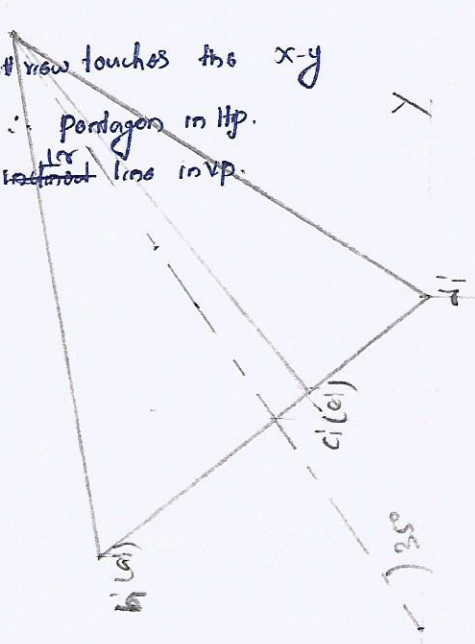 view touches the x-y
∴ pentagon in Hp.
Ir
inclined line in vp.
Y
d'
c' (e')
b' (a')
35°